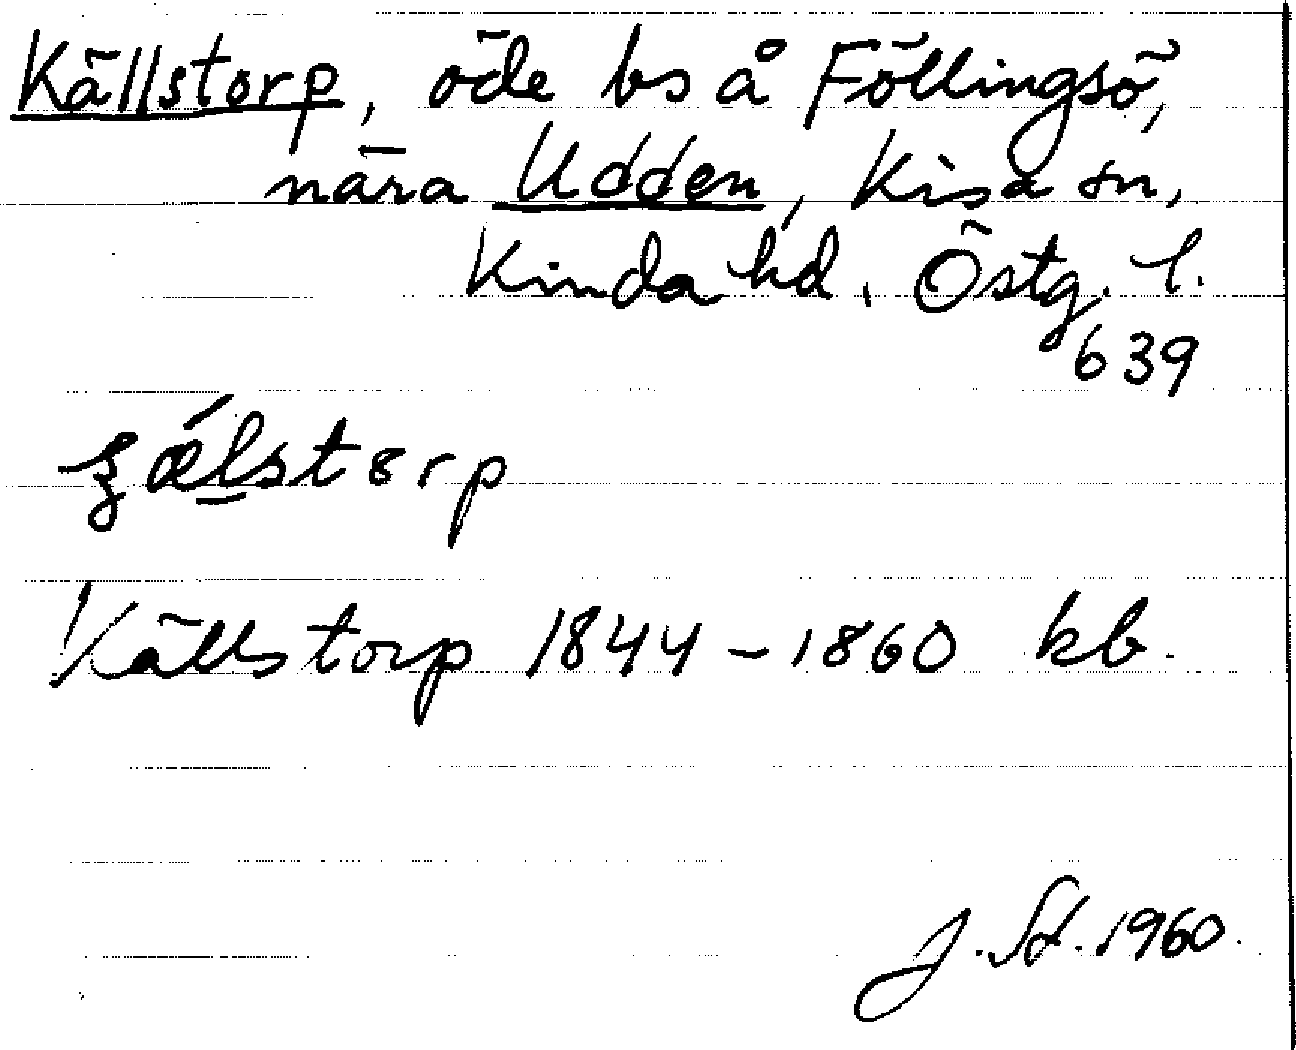 Källstorp, öde bs å Föllingsö,
nära Udden, Kisa sn,
Kinda hd, Östg. l.
639
Källstorp 1844-1860 kb.
J. St. 1960.